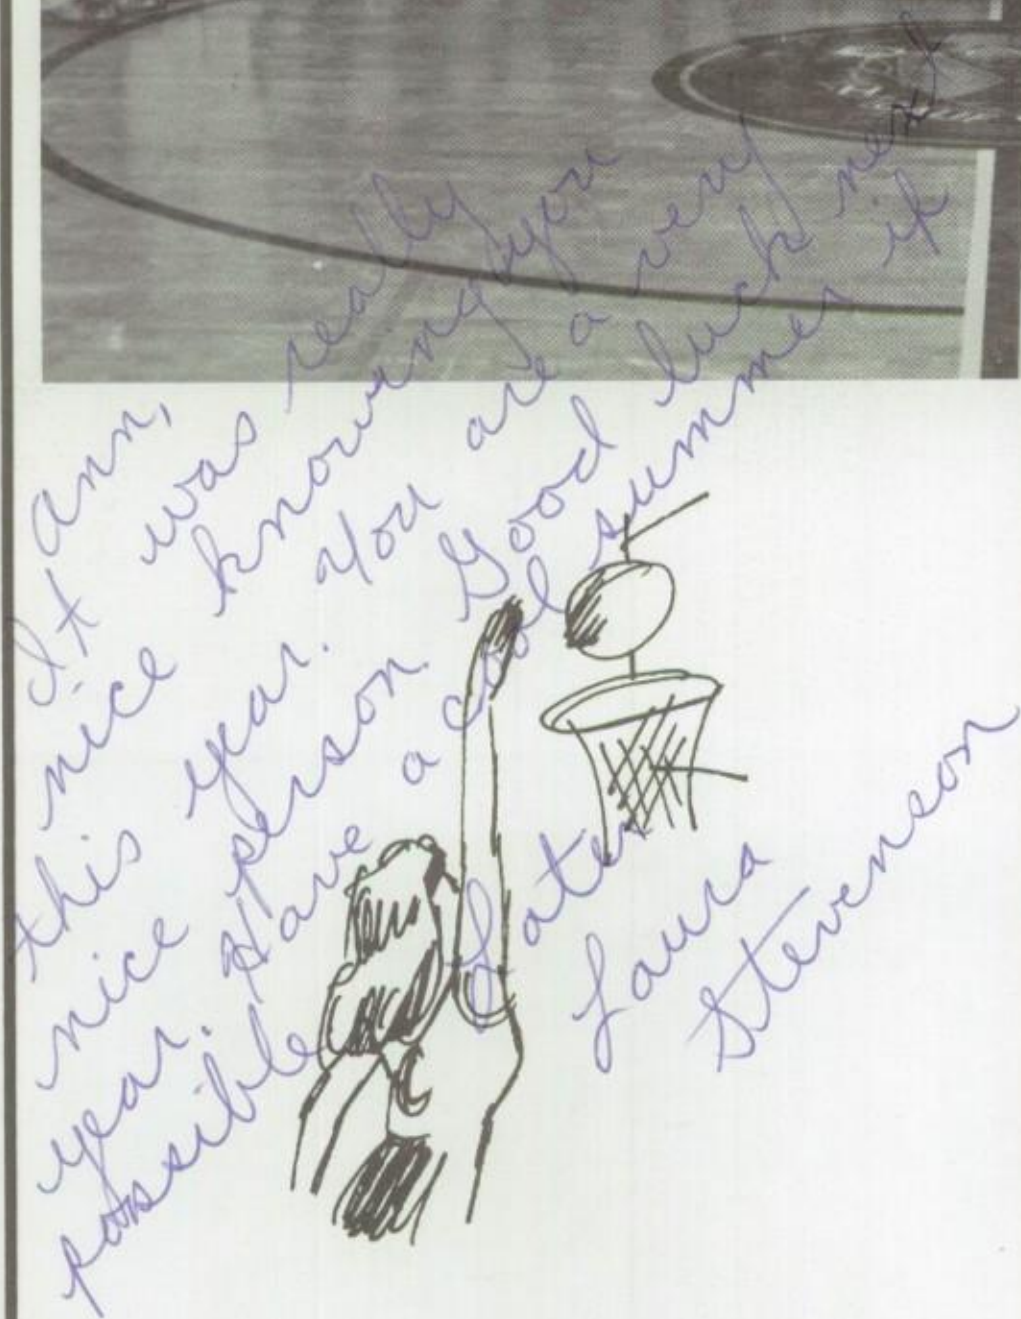 Ann,
It was really
nice knowing you
this year. You are a very
nice person. Good luck next
year. Have a cool summer if
possible
Later
Laura
Stevenson